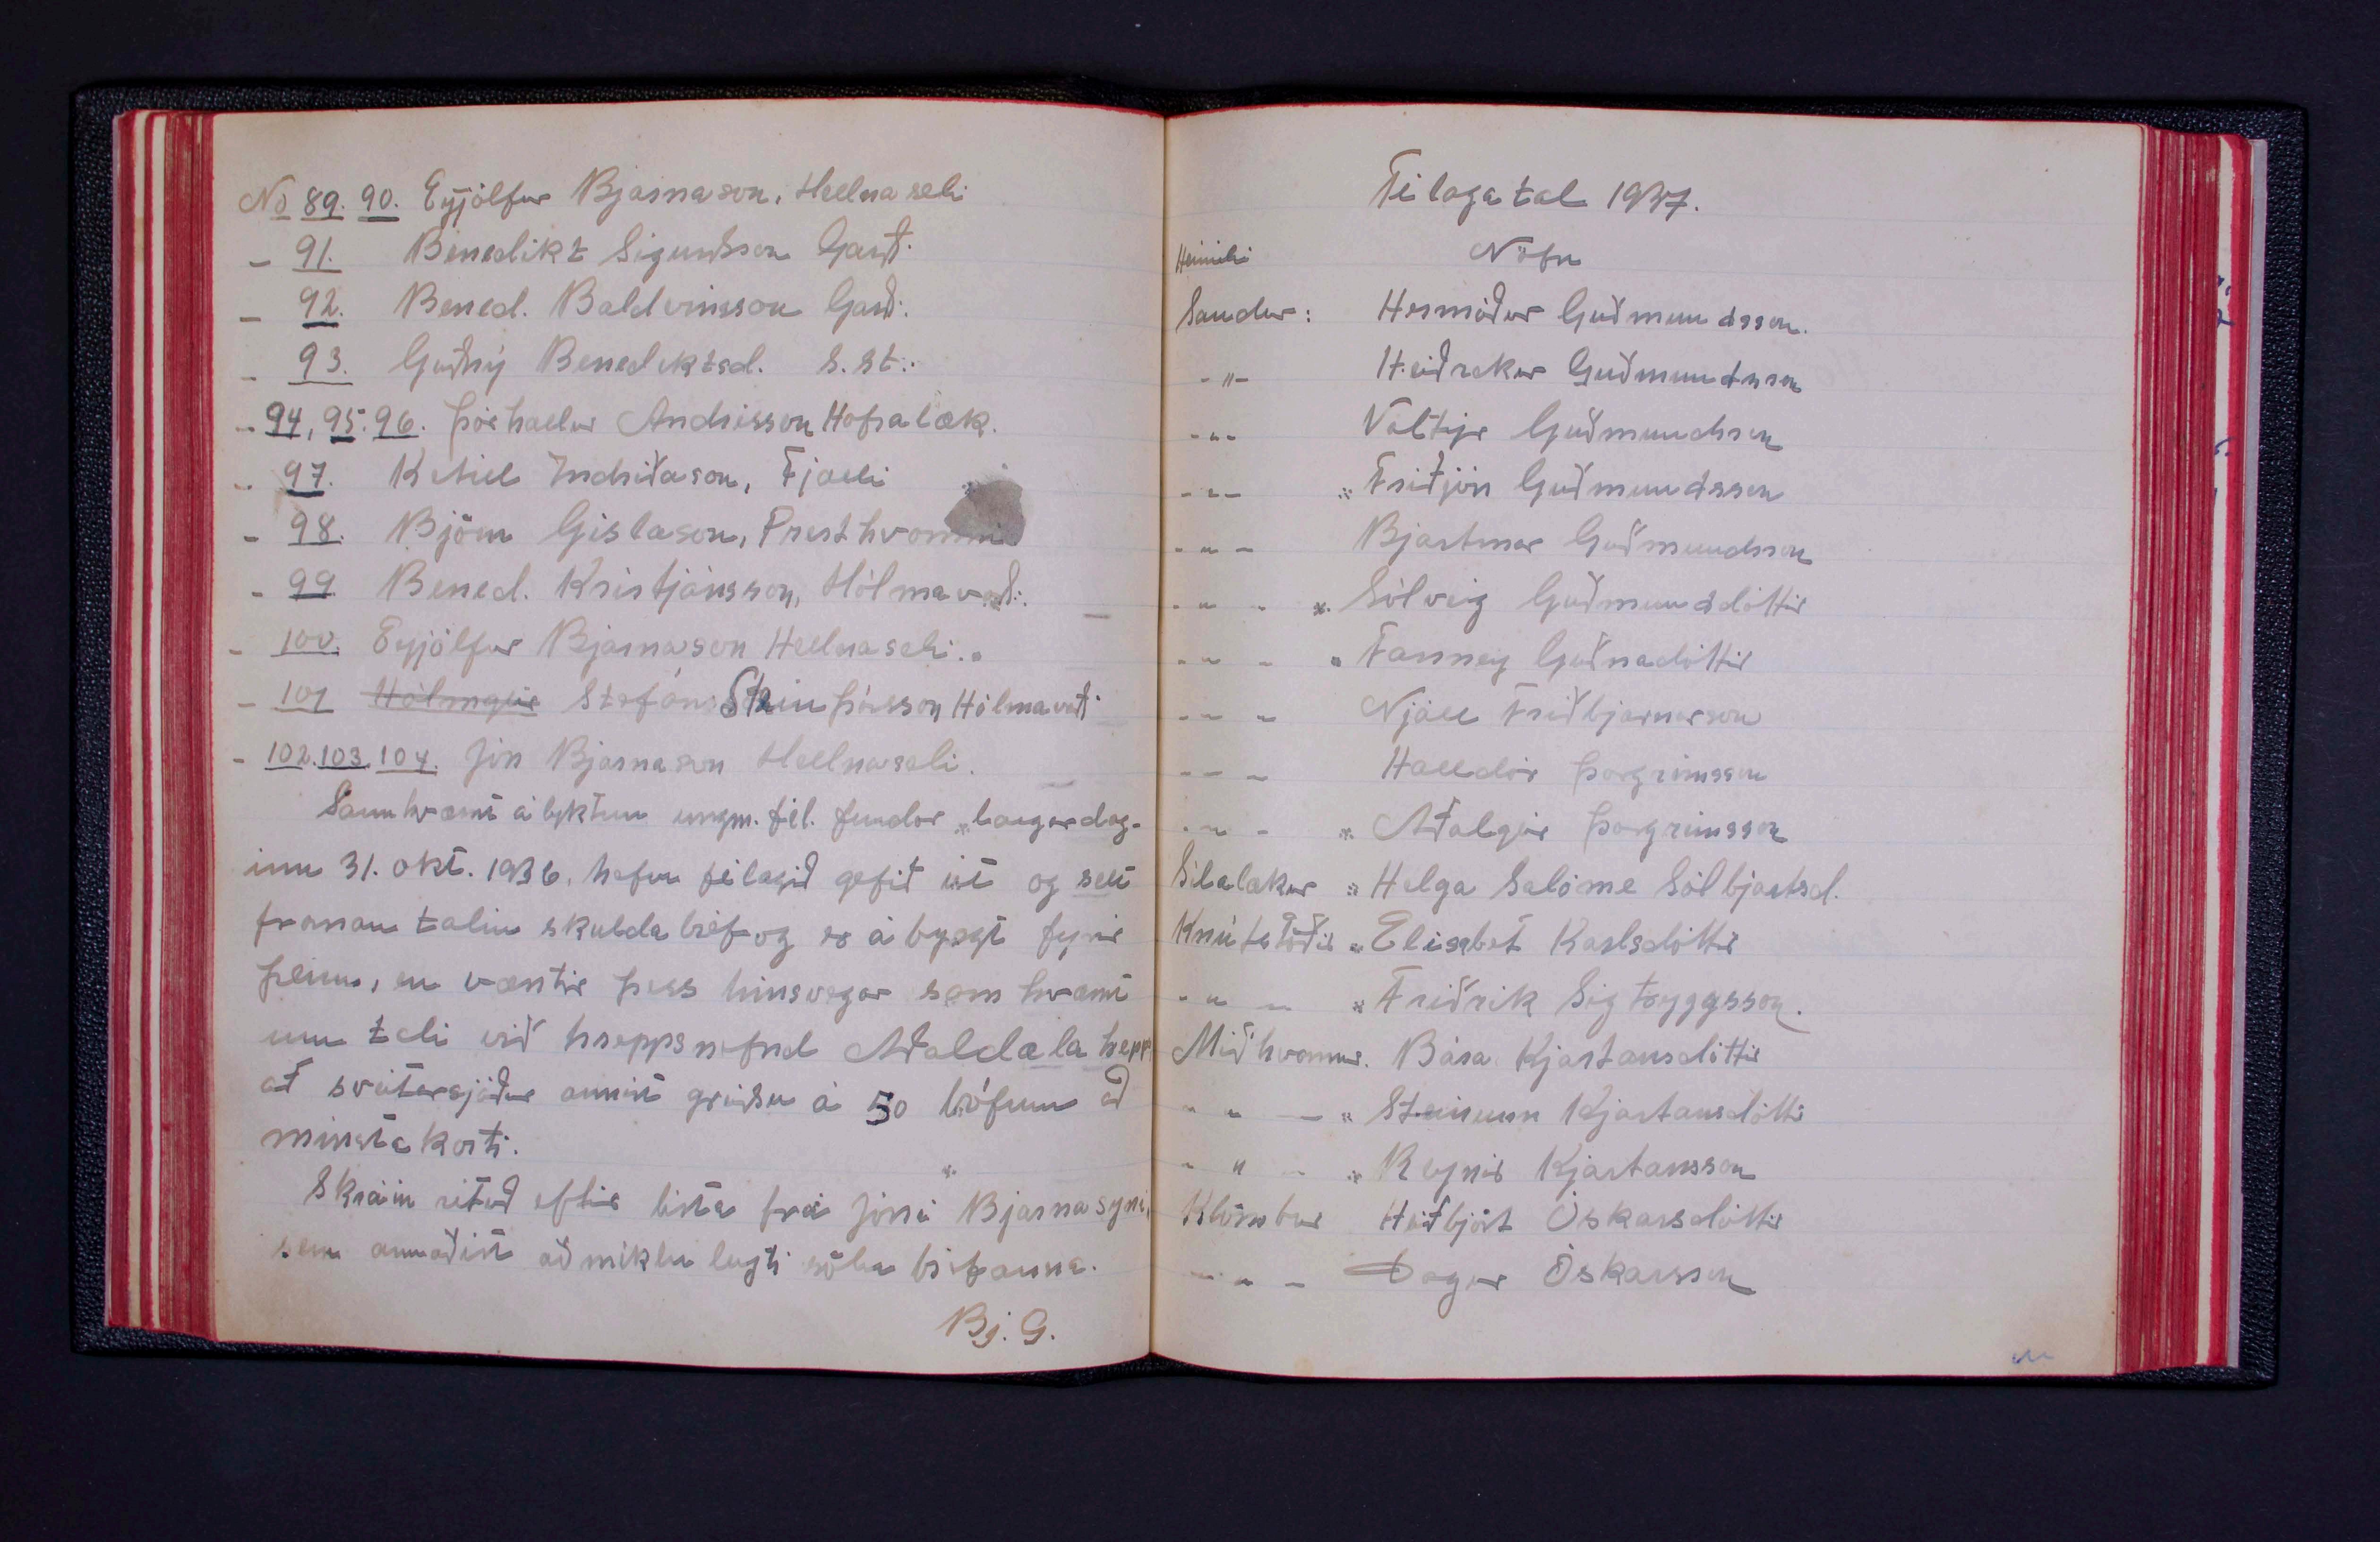 No 89. 90. Eyjólfur Bjarnason, Hellnaseli
- 91. Benedikt Sigurðsson Garð.
- 92. Bened. Baldvinsson Garð:
- 93. Guðný Benediktsd. s.st.:
- 94, 95. 96. Þórhallur Andrésson Hafralæk.
- 97. Ketill Indriðason, Fjalli
- 98. Björn Gíslason, Presthvammi
- 99. Bened. Kristjánsson, Hólmavað:
- 100. Eyjólfur Bjarnason Hellnaseli.
- 101 Hólmgeir Stefán Steinþórsson Hólmavaði
- 102. 103. 104. Jón Bjarnason Hellnaseli.
Samkvæmt ályktun ungm. fél. fundar laugardag-
inn 31. okt. 1936, hefur félagið gefið út og selt
framan talin skuldabréf og er ábyrgt fyrir
þeim, en væntir þess hinsvegar samkvæmt
um tali við hreppsnefnd Aðaldæla hepp
að sveitarsjóður annist greiðslu á 50 bréfum að
minsta kosti.
Skráin rituð eftir lista frá Jóni Bjarnasyni,
sem annaðist að miklu leyti sölu bréfanna.
Bj. G.
Félagatal 1937.
Heimili Nöfn
Sandur: Hermóður Guðmundsson.
-"- Heiðrekur Guðmundsson
-"- Valtýr Guðmundsson
-"- Friðjón Guðmundsson
-"- Bjartmar Guðmundsson
-"- Sólveig Guðmundsdóttir
-"- Fanney Guðnadóttir
-"- Njáll Friðbjarnarson
-"- Halldór Þorgrímsson
-"- Aðalgeir Þorgrímsson
Sílalækur Helga Salóme Sólbjartsd.
Knútstöðir Elísabet Karlsdóttir
-"- Friðrik Sigtryggsson.
Miðhvammur. Bára Kjartansdóttir
-"- Steinunn Kjartansdóttir
-"- Reynir Kjartansson
Klömbur Heiðbjört Óskarsdóttir
-"- Dagur Óskarsson